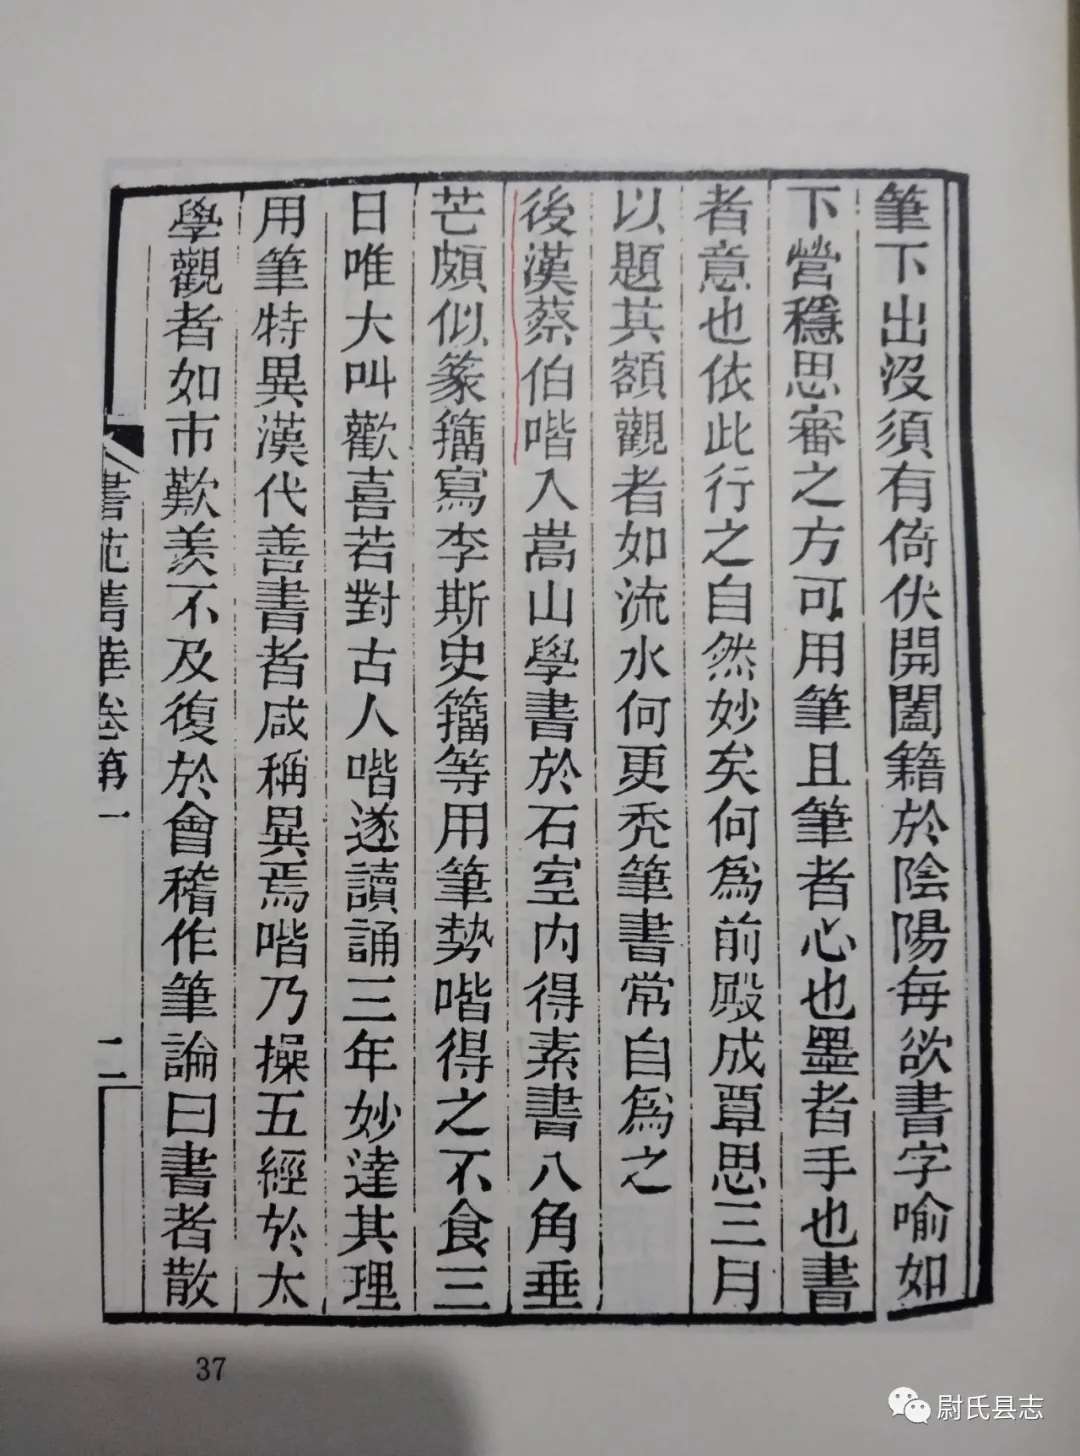 筆下出没須有倚伏開闔籍於陰陽每欲書字喻如
下營穩思審之方可用筆且筆者心也墨者手也書
者意也依此行之自然妙矣何為前殿成覃思三月
以題其額觀者如流水何更秃筆書常自為之
後漢蔡伯喈入嵩山學書於石室内得素書八角垂
芒頗似篆籀寫李斯史籀等用筆勢喈得之不食三
日唯大叫歡喜若對古人喈遂讀誦三年妙達其理
用筆特異漢代善書者咸稱異焉喈乃操五經於太
學觀者如市歎羡不及復於會稽作筆論曰書者散
書苑菁華卷第一
二
37
尉氏县志